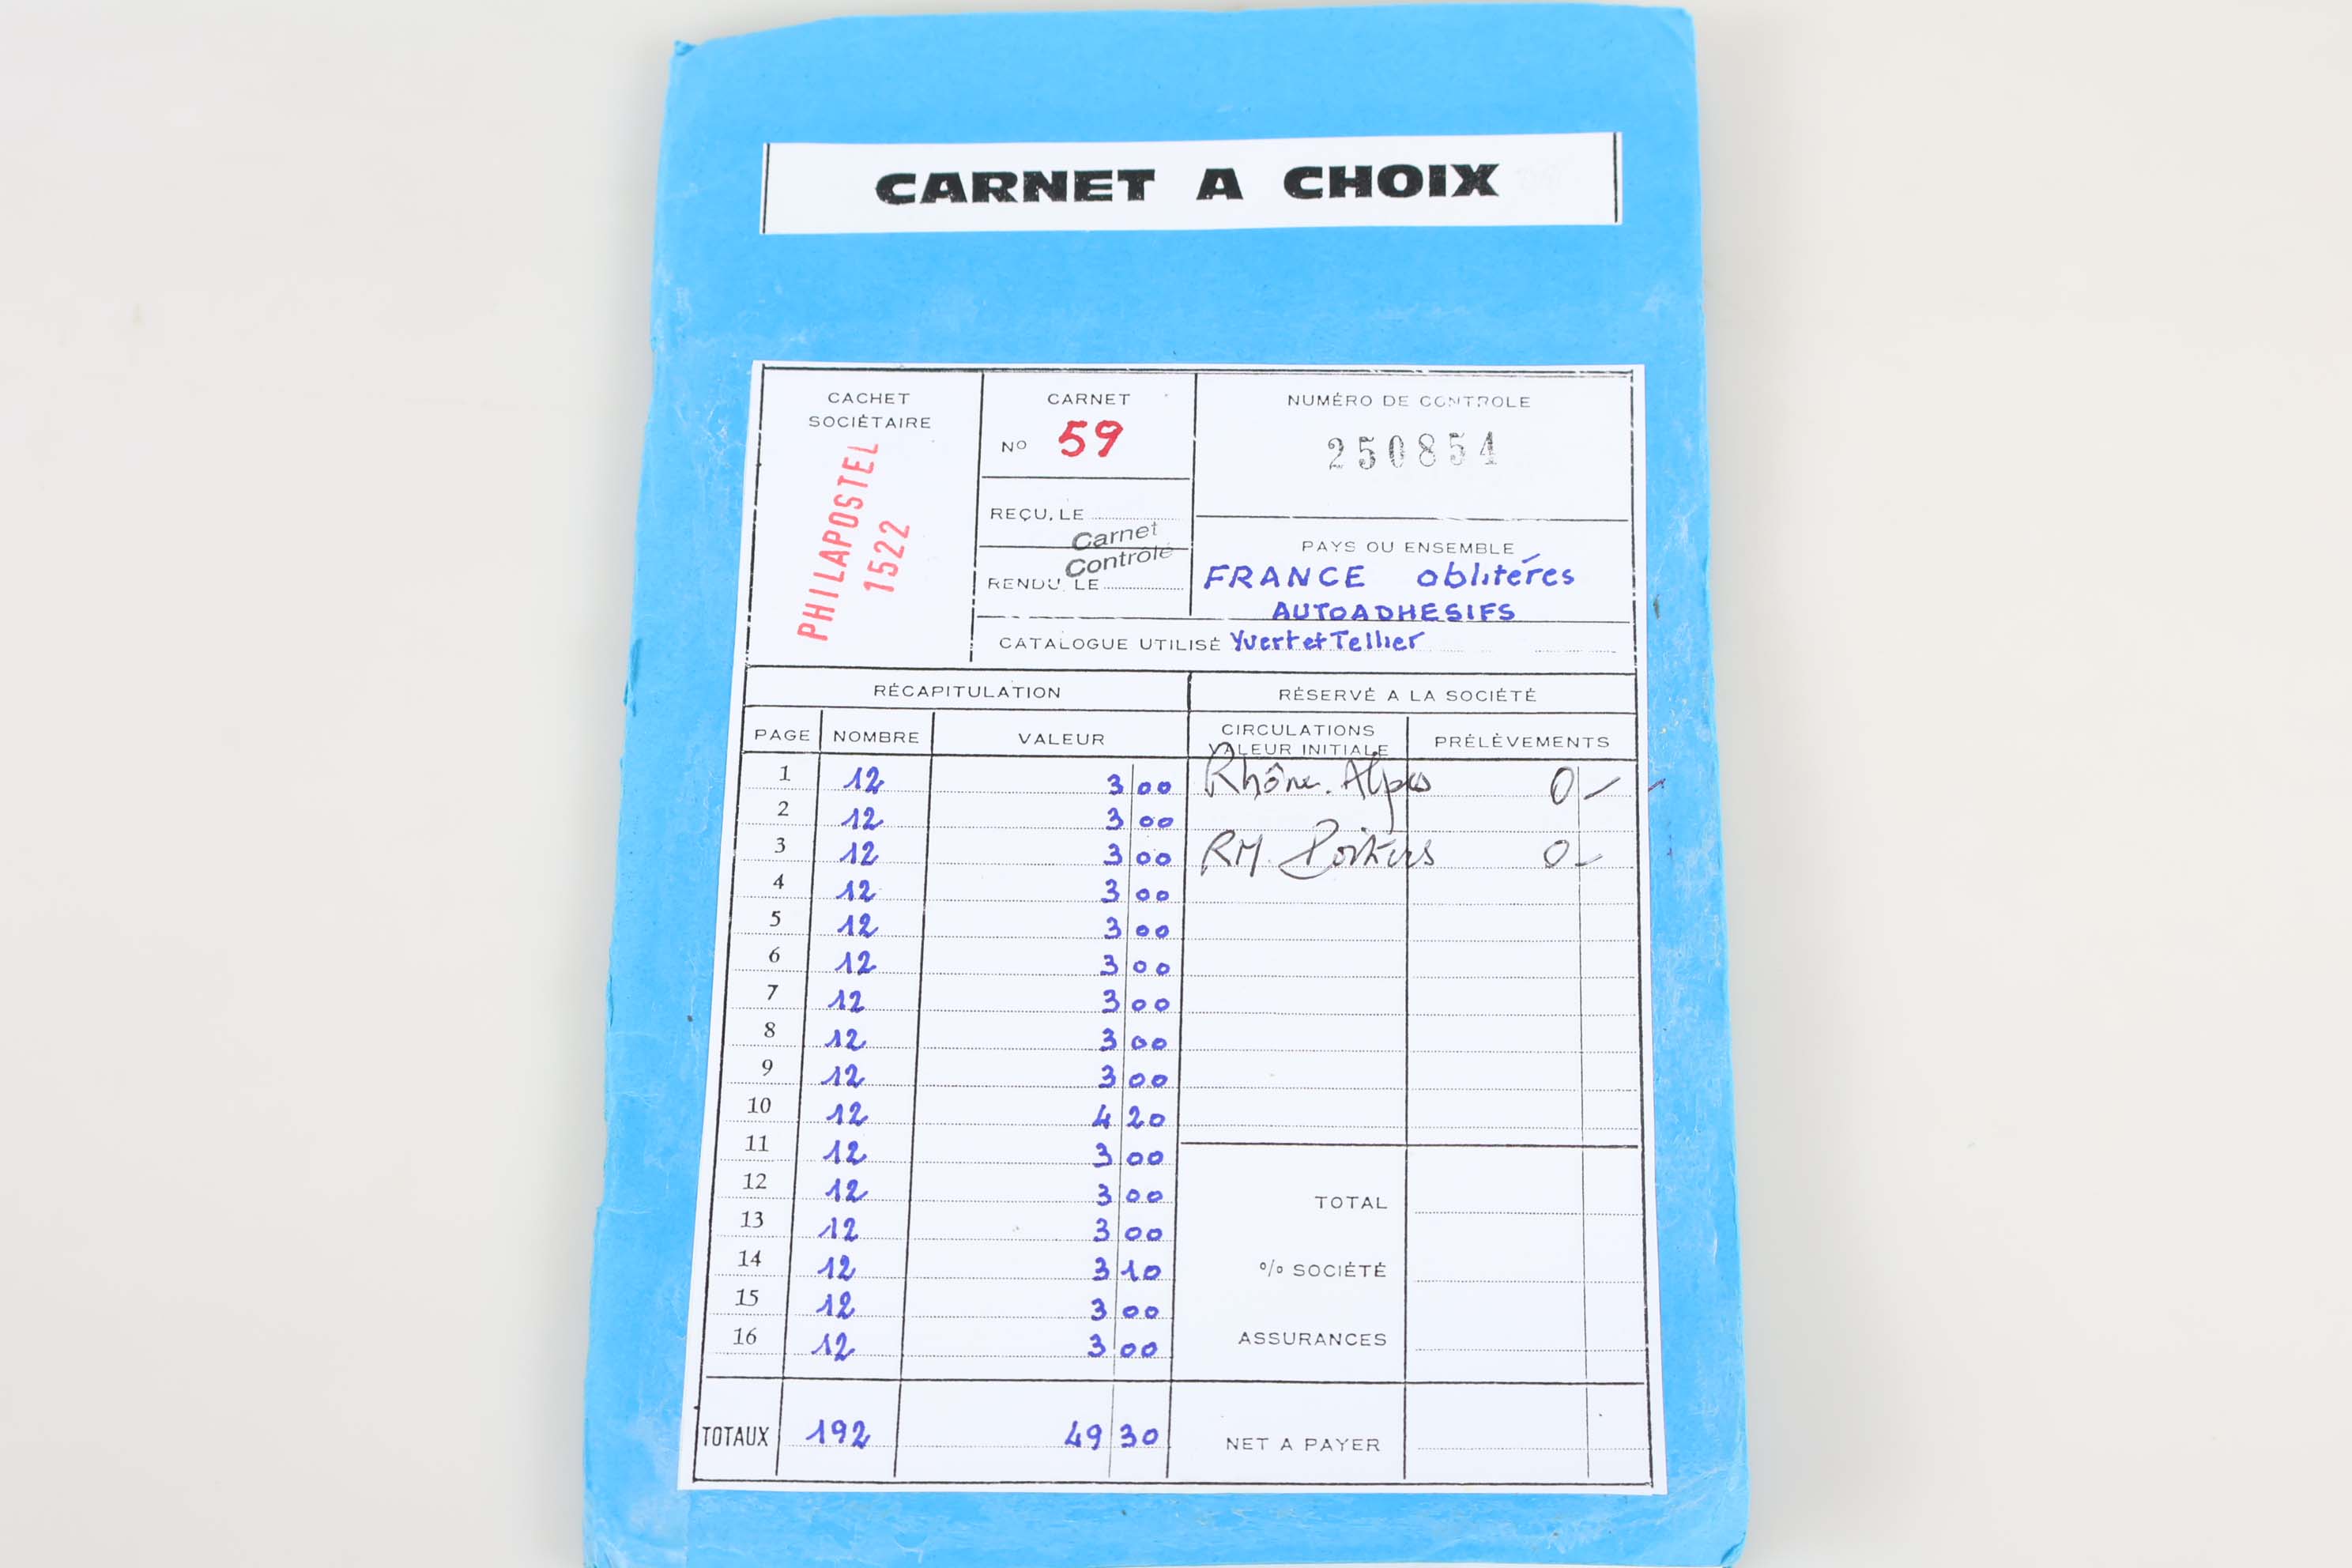 CARNET A CHOIX
CACHET
SOCIÉTAIRE
PHILAPOSTEL
1522
CARNET
No 59
NUMÉRO DE CONTROLE
250854
REÇU, LE
Carnet
Contrôlé
RENDU, LE
PAYS OU ENSEMBLE
FRANCE oblitérés
AUTOADHESIFS
CATALOGUE UTILISÉ Yvert et Tellier
RÉCAPITULATION RÉSERVÉ A LA SOCIÉTÉ
PAGE NOMBRE VALEUR CIRCULATIONS VALEUR INITIALE PRÉLÈVEMENTS
1 12 3 00 Rhône. Alpes 0 -
2 12 3 00
3 12 3 00 RM. Poitiers 0 -
4 12 3 00
5 12 3 00
6 12 3 00
7 12 3 00
8 12 3 00
9 12 3 00
10 12 4 20
11 12 3 00
12 12 3 00
13 12 3 00
14 12 3 10
15 12 3 00
16 12 3 00
TOTAL
% SOCIÉTÉ
ASSURANCES
TOTAUX 192 49 30 NET A PAYER